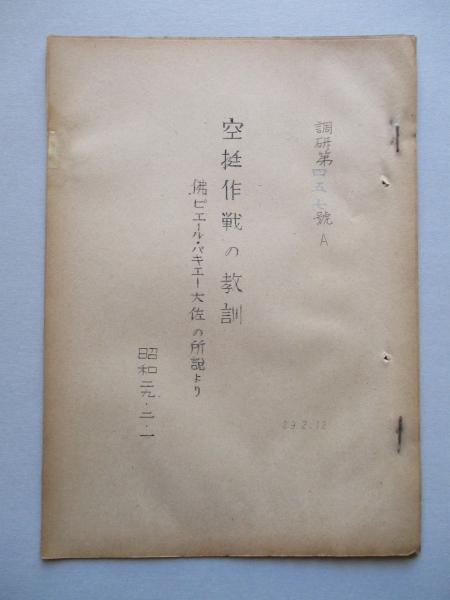 調研第四五七號A
空挺作戦の教訓
佛ピエール・パキエー大佐の所説より
昭和二九・二・一
29.2.12